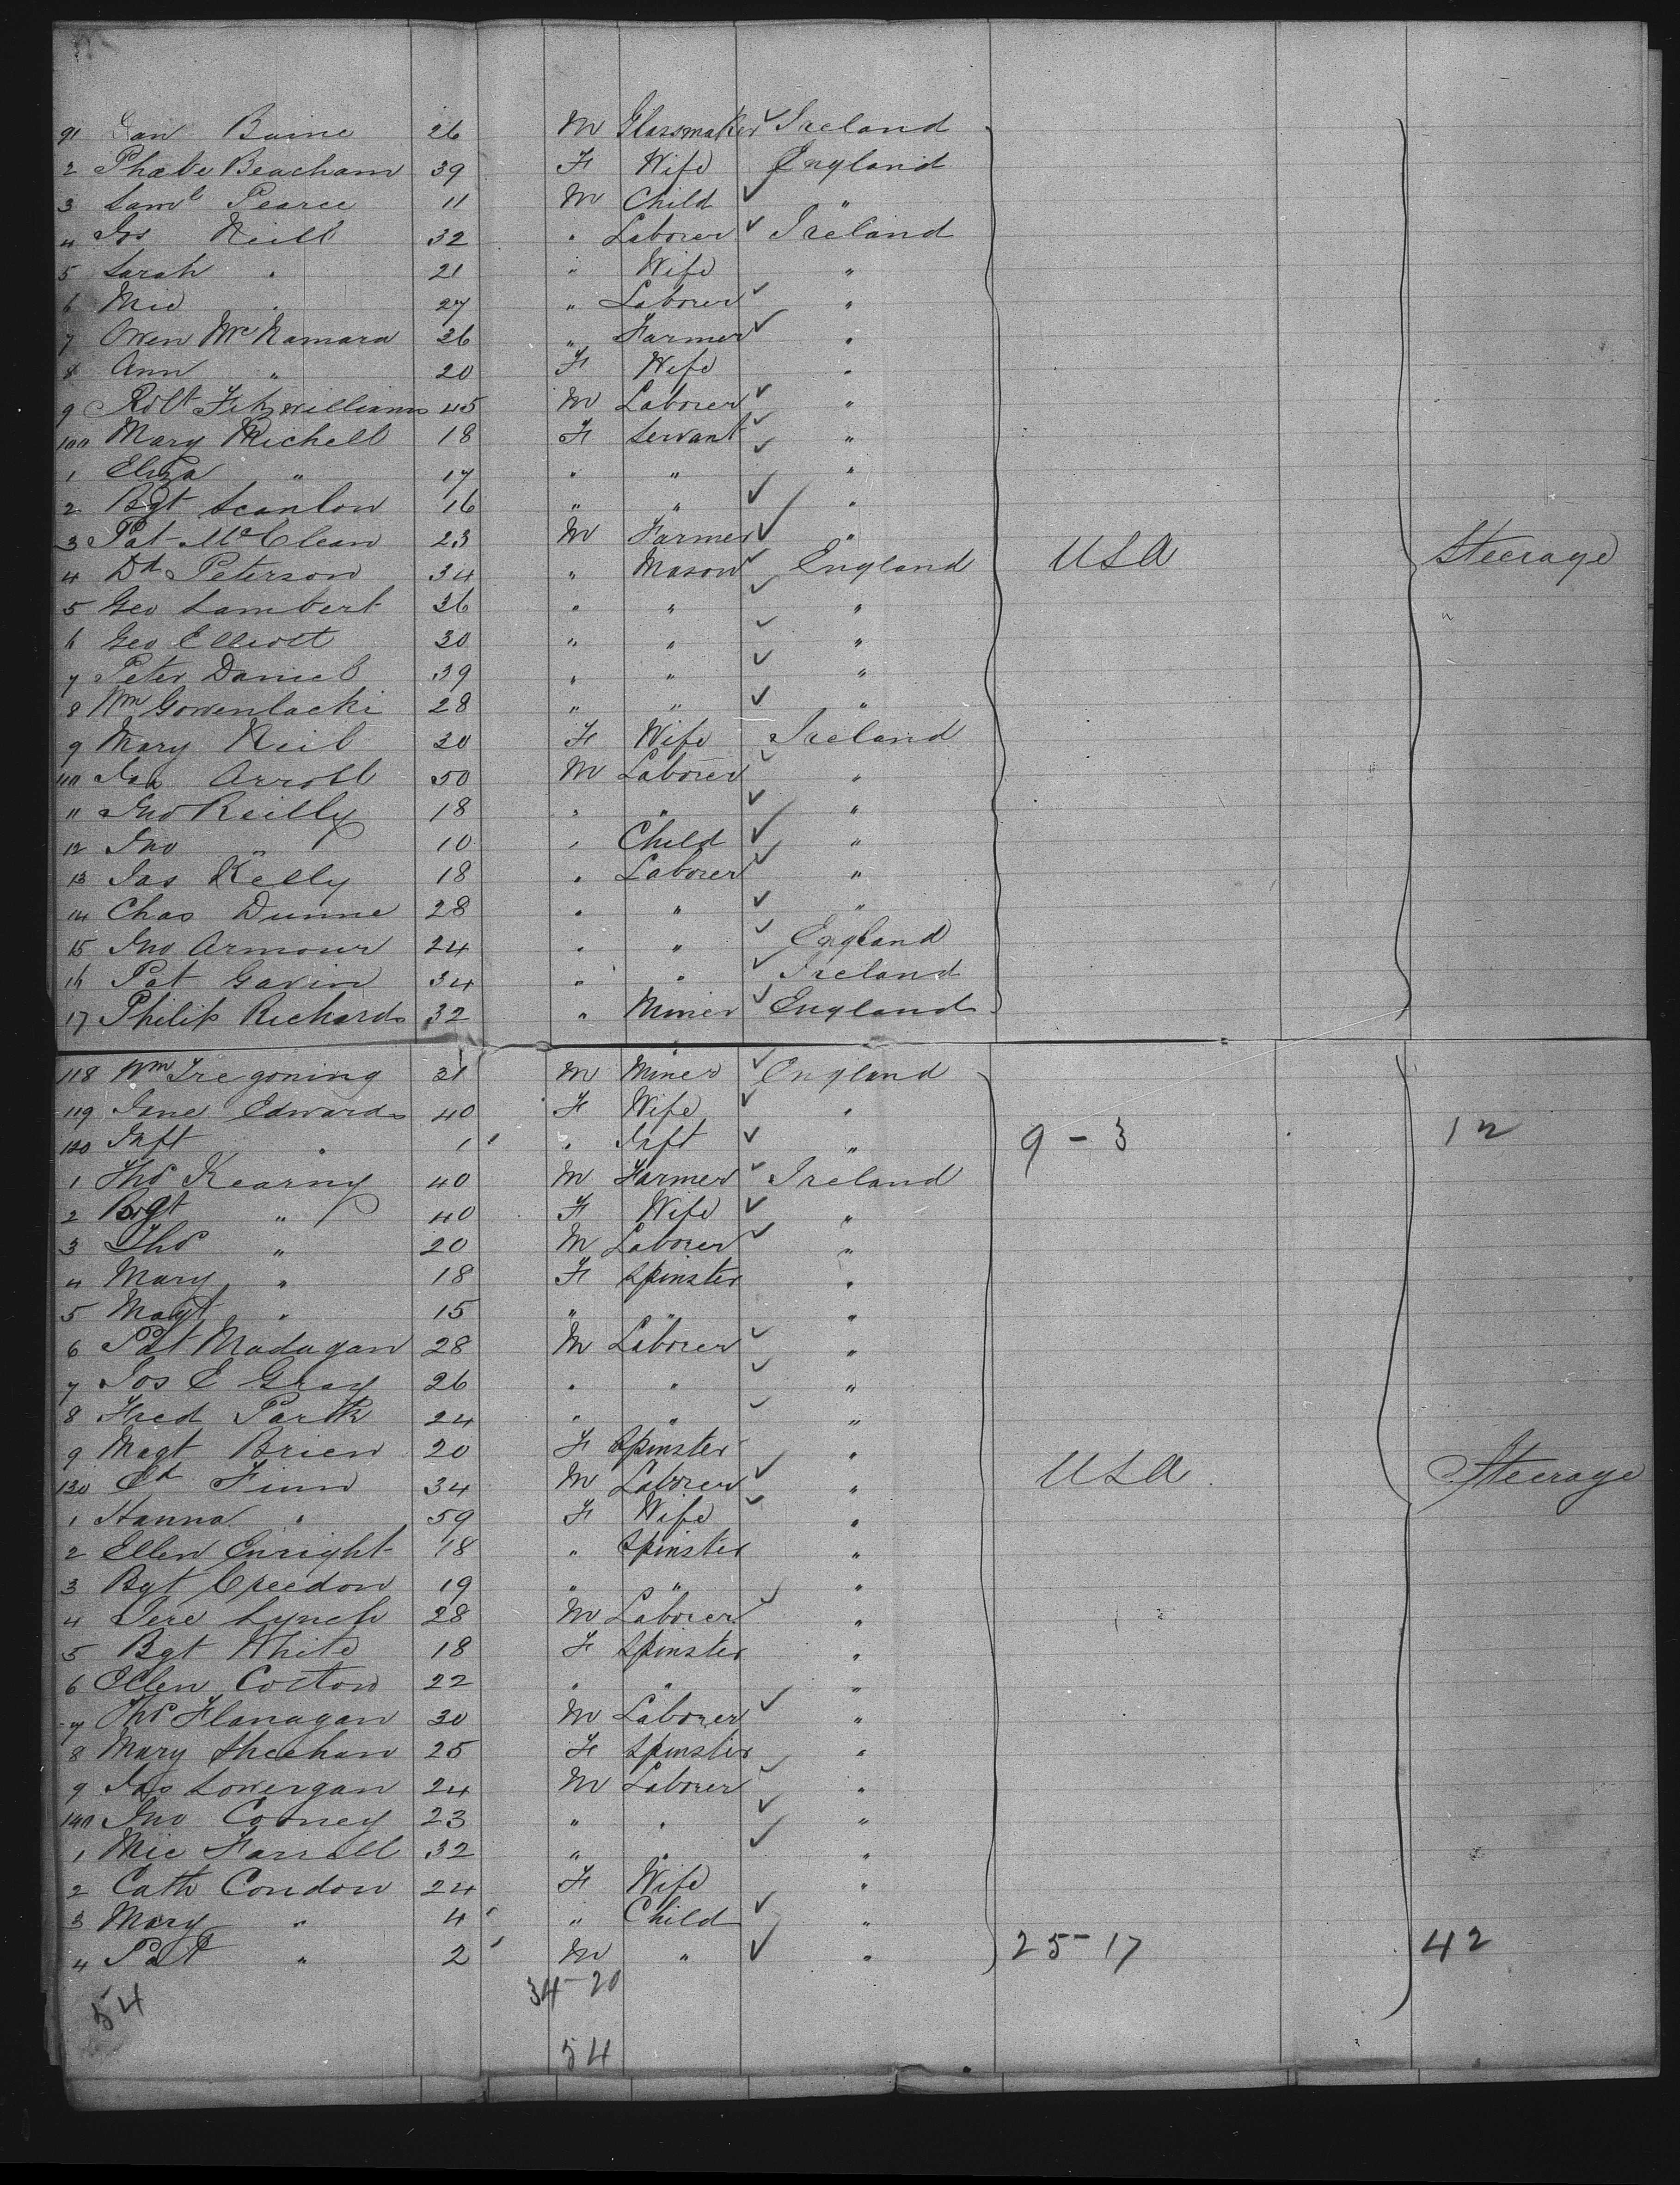 91 Dan Baine 26 M Glassmaker ✓ Ireland
2 Phœbe Beacham 39 F Wife England
3 Saml Pearce 11 M Child ✓ "
4 Jos Neill 32 " Laborer ✓ Ireland
5 Sarah " 21 " Wife "
6 Mic " 27 " Laborer ✓ "
7 Owen McNamara 36 " Farmer ✓ "
8 Ann " 20 F Wife "
9 Robt Fitzwilliams 45 M Laborer ✓ "
100 Mary Michell 18 F Servant ✓ "
1 Eliza " 17 " " ✓ "
2 Bgt Scanlon 16 " " ✓ "
3 Pat McClean 23 M Farmer ✓ "
4 Dd Peterson 34 " Mason ✓ England USA Steerage
5 Geo Lambert 36 " " ✓ "
6 Geo Elliott 30 " " ✓ "
7 Peter Daniel 39 " " ✓ "
8 Wm Gowenlacki 28 " " ✓ "
9 Mary Neil 30 F Wife Ireland
110 Jas Arroll 50 M Laborer ✓ "
11 Jno Reilly 18 " " ✓ "
12 Jno " 10 " Child ✓ "
13 Jas Kelly 18 " Laborer ✓ "
14 Chas Dunne 28 " " ✓ "
15 Jno Armour 24 " " ✓ England
16 Pat Gavin 34 " " ✓ Ireland
17 Philip Richards 32 " Miner ✓ England
118 Wm Tregoning 31 M Miner ✓ England
119 Jane Edwards 40 F Wife ✓ "
120 Inft " 1 " Inft ✓ " 9 - 3 12
1 Thos Kearny 40 M Farmer ✓ Ireland
2 Bgt " 40 F Wife ✓ "
3 Thos " 20 M Laborer ✓ "
4 Mary " 18 F Spinster "
5 Magt " 15 " " "
6 Pat Madagan 28 M Laborer ✓ "
7 Jos E Gray 26 " " ✓ "
8 Fred Park 24 " " ✓ "
9 Magt Brien 20 F Spinster "
130 Ed Finn 34 M Laborer ✓ " USA Steerage
1 Hanna " 59 F Wife ✓ "
2 Ellen Enright 18 " Spinster "
3 Bgt Creedon 19 " " "
4 Jere Lynch 28 M Laborer ✓ "
5 Bgt White 18 F Spinster "
6 Ellen Cotton 22 " " "
7 Thos Flanagan 30 M Laborer ✓ "
8 Mary Sheehan 25 F Spinster "
9 Jas Lonergan 24 M Laborer ✓ "
140 Jno Cooney 23 " " ✓ "
1 Mic Farrell 32 " " ✓ "
2 Cath Condon 24 F Wife "
3 Mary " 4 " Child ✓ "
4 Pat " 2 M " ✓ " 25 - 17 42
54 34 - 20
54